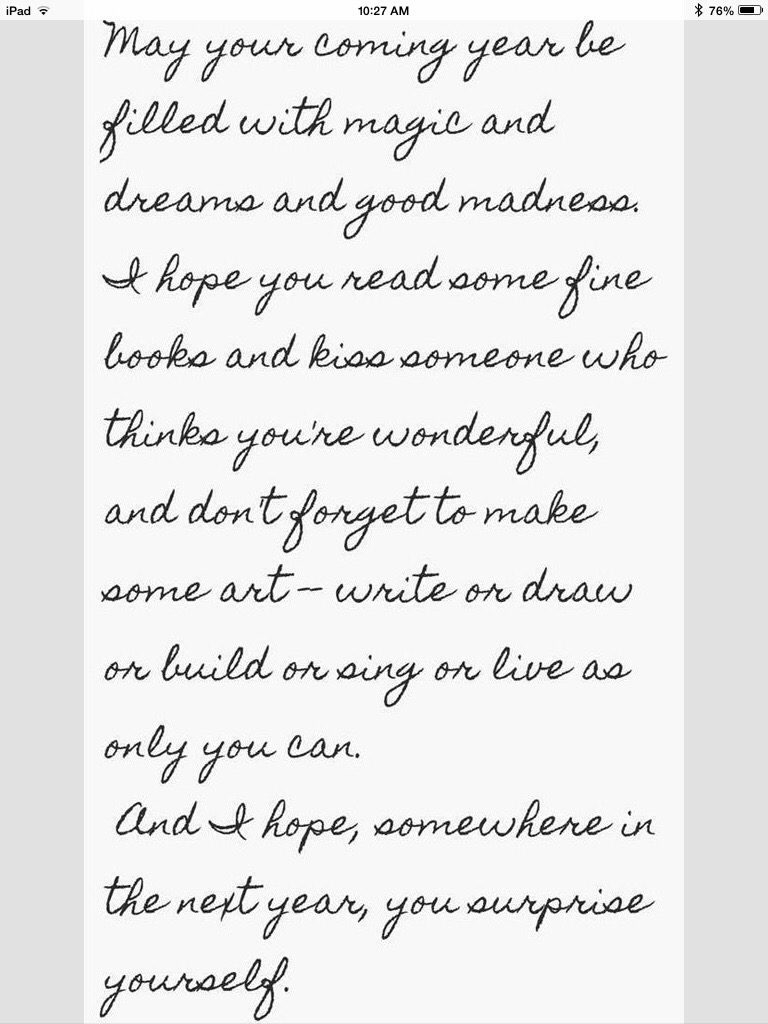 iPad 10:27 AM 76%
May your coming year be
filled with magic and
dreams and good madness.
I hope you read some fine
books and kiss someone who
thinks you're wonderful,
and don't forget to make
some art -- write or draw
or build or sing or live as
only you can.
And I hope, somewhere in
the next year, you surprise
yourself.